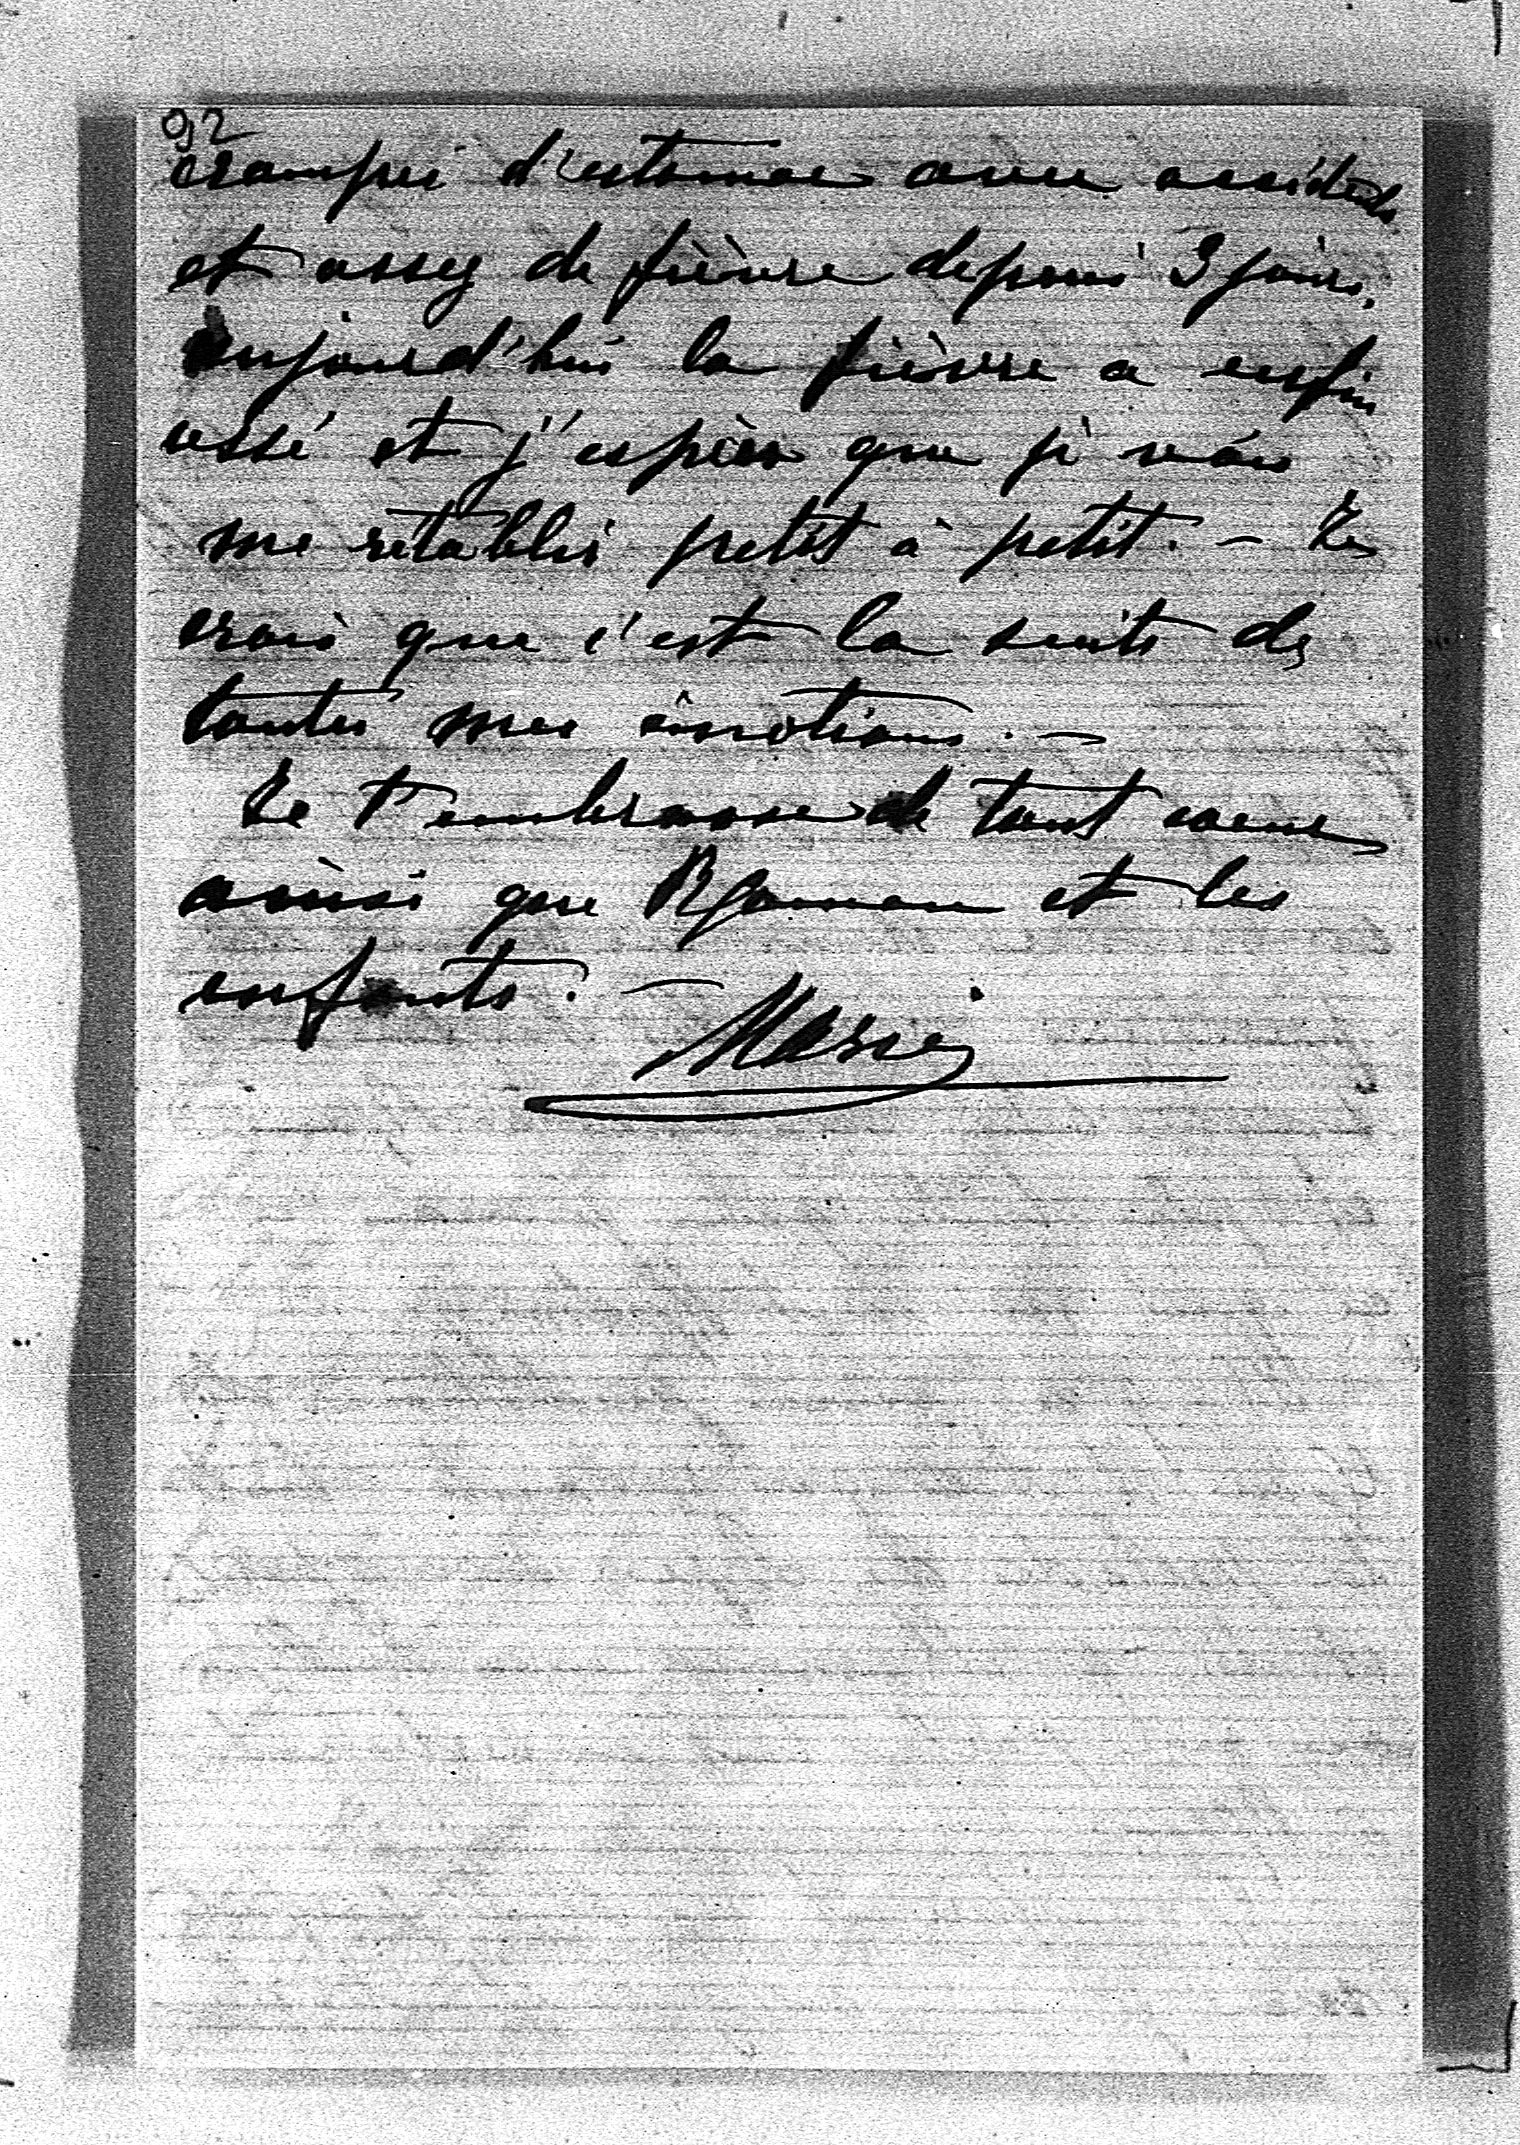 92
crampes d'estomac avec accidents
et assez de fièvre depuis 3 jours,
aujourd'hui la fièvre a enfin
cessé et j'espère que je vais
me rétablir petit à petit. – Je
crois que c'est la suite de
toutes mes émotions. –
Je t'embrasse de tout coeur
ainsi que et les
enfants. –
Marie